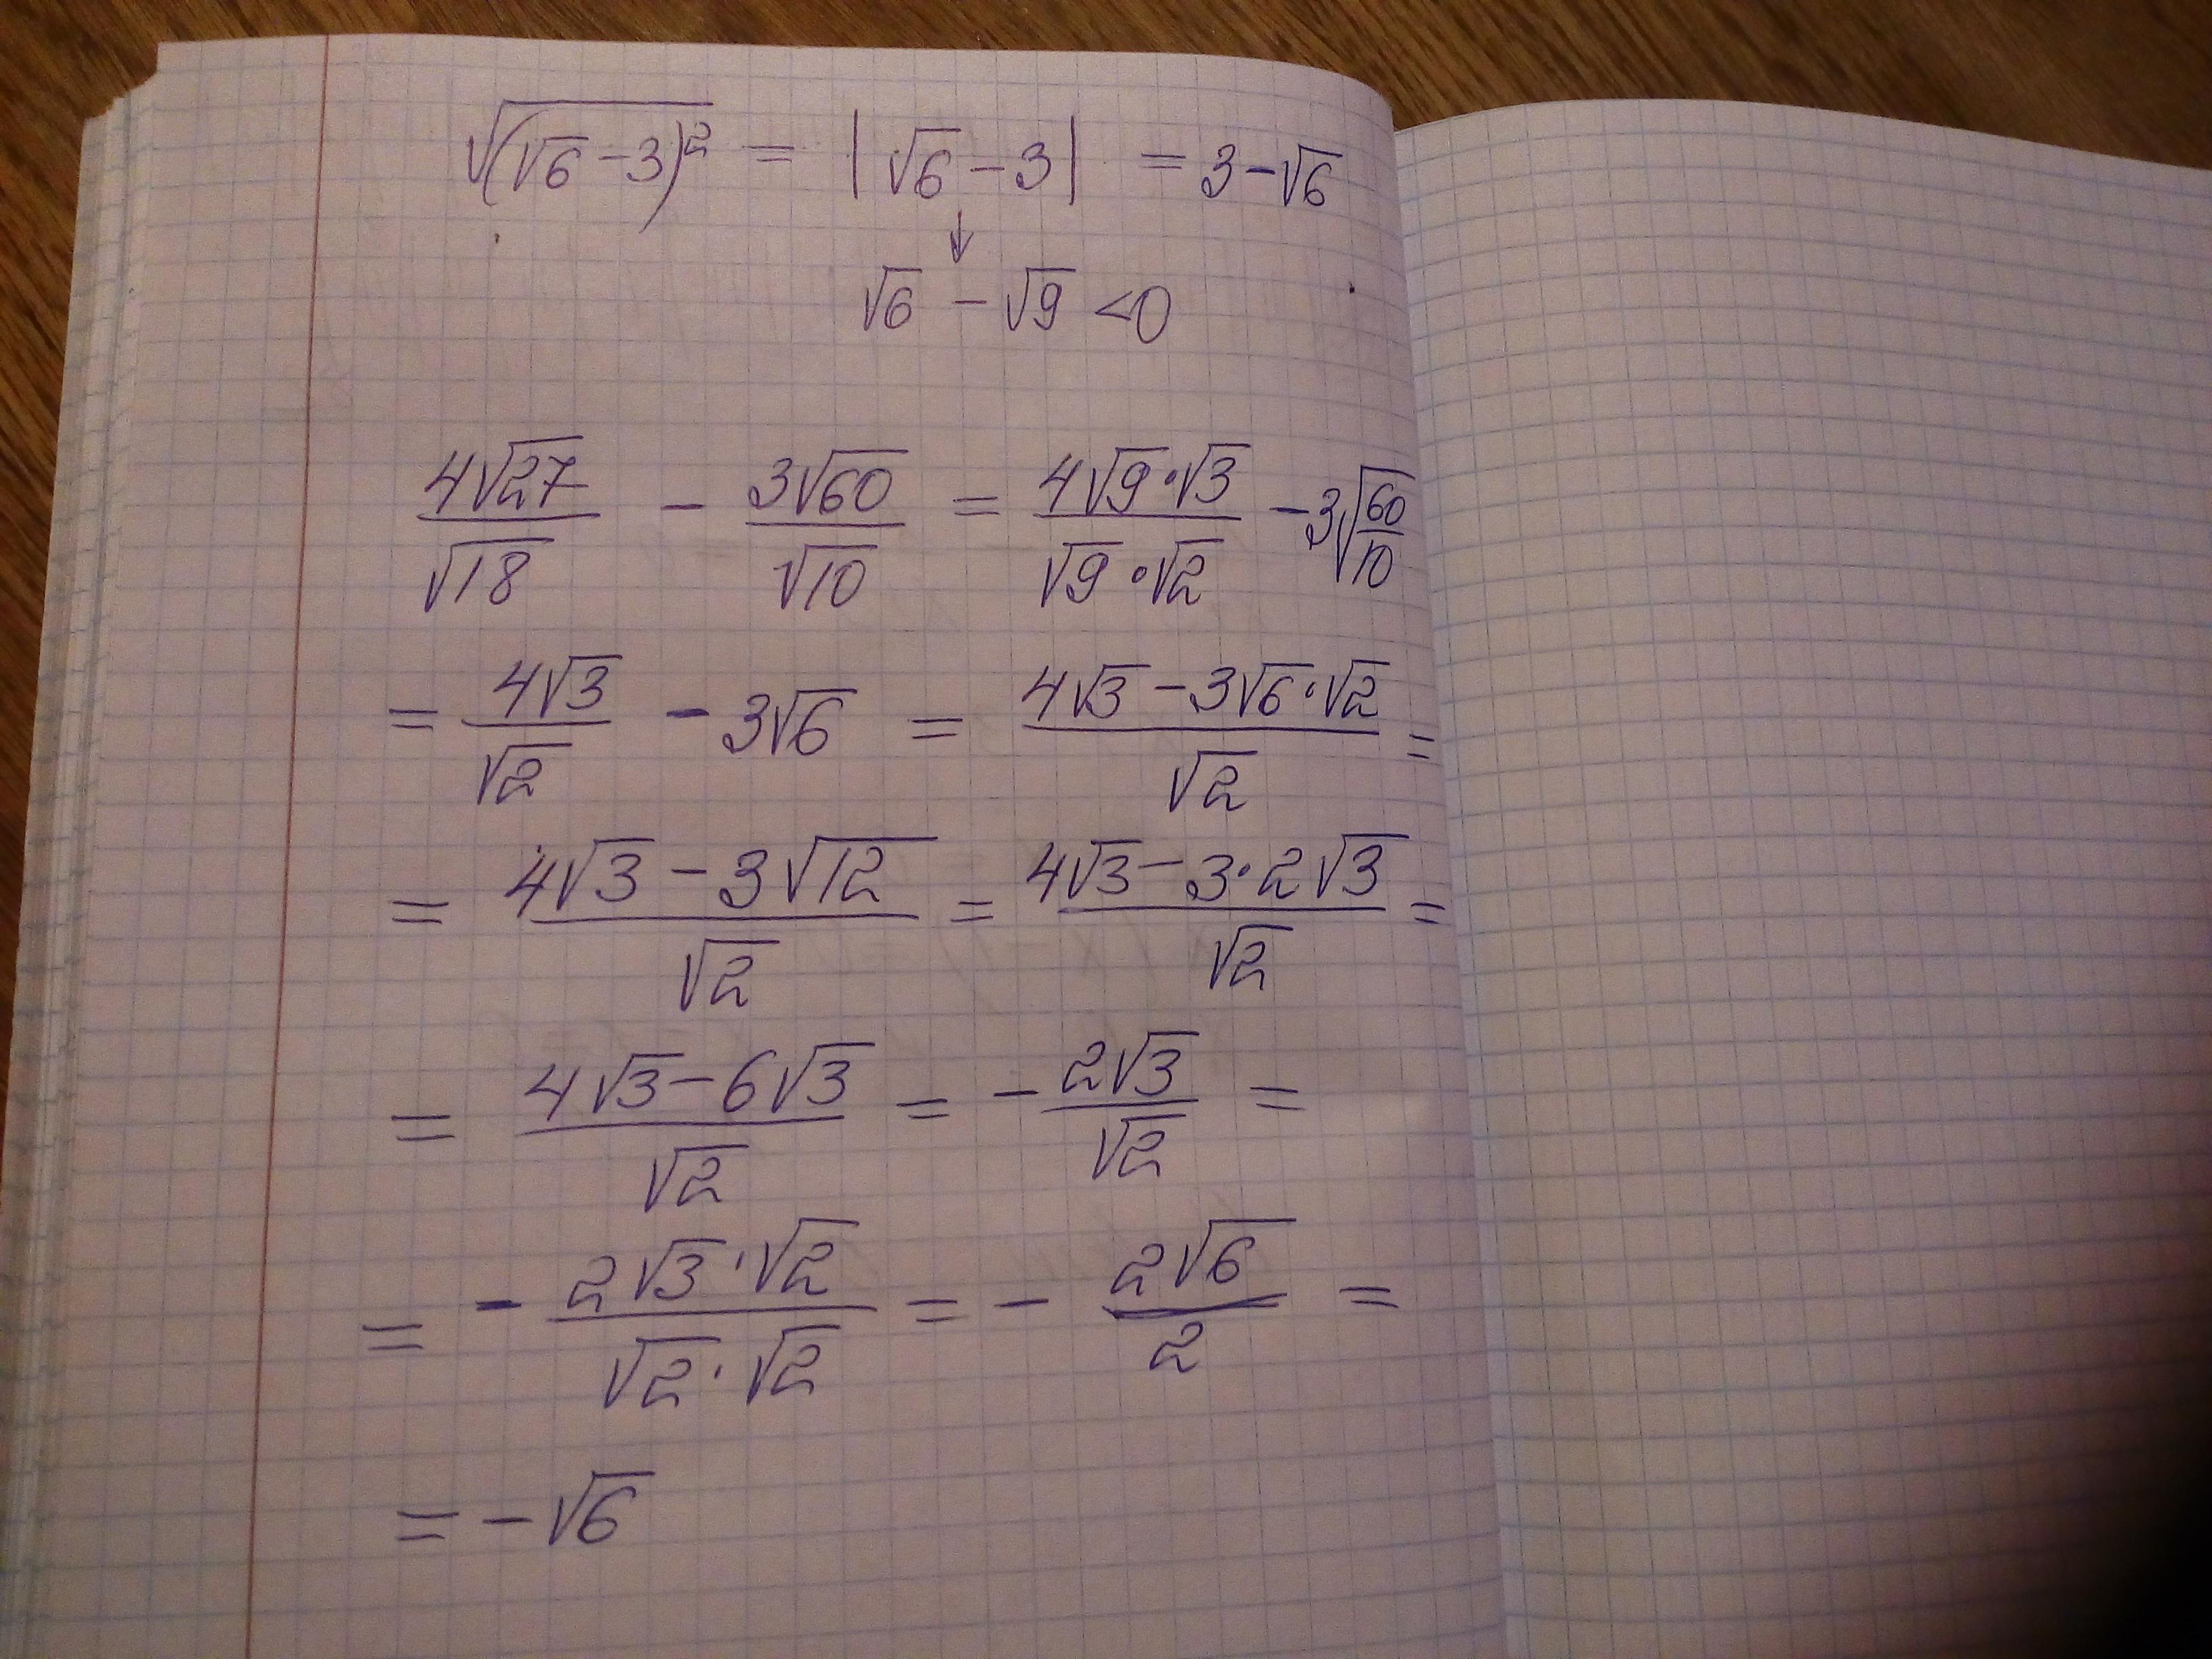 √((√6 − 3)²) = |√6 − 3| = 3 − √6
↓
√6 − √9 < 0
4√27/√18 − 3√60/√10 = 4√9·√3/√9·√2 − 3√(60/10)
= 4√3/√2 − 3√6 = (4√3 − 3√6·√2)/√2 =
= (4√3 − 3√12)/√2 = (4√3 − 3·2√3)/√2 =
= (4√3 − 6√3)/√2 = − 2√3/√2 =
= − 2√3·√2/√2·√2 = − 2√6/2 =
= − √6